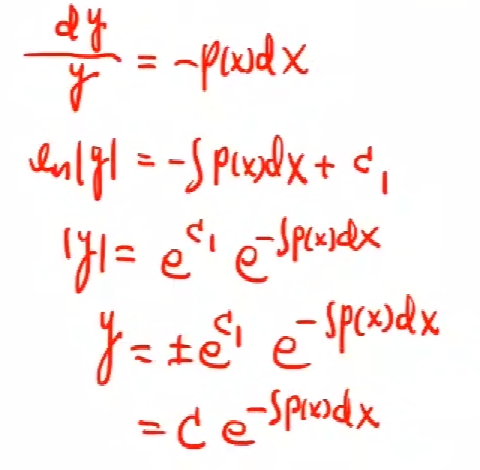 dy/y = -p(x)dx
ln|y| = -∫p(x)dx + C₁
|y| = e^{C₁} e^{-∫p(x)dx}
y = ±e^{C₁} e^{-∫p(x)dx}
= C e^{-∫p(x)dx}